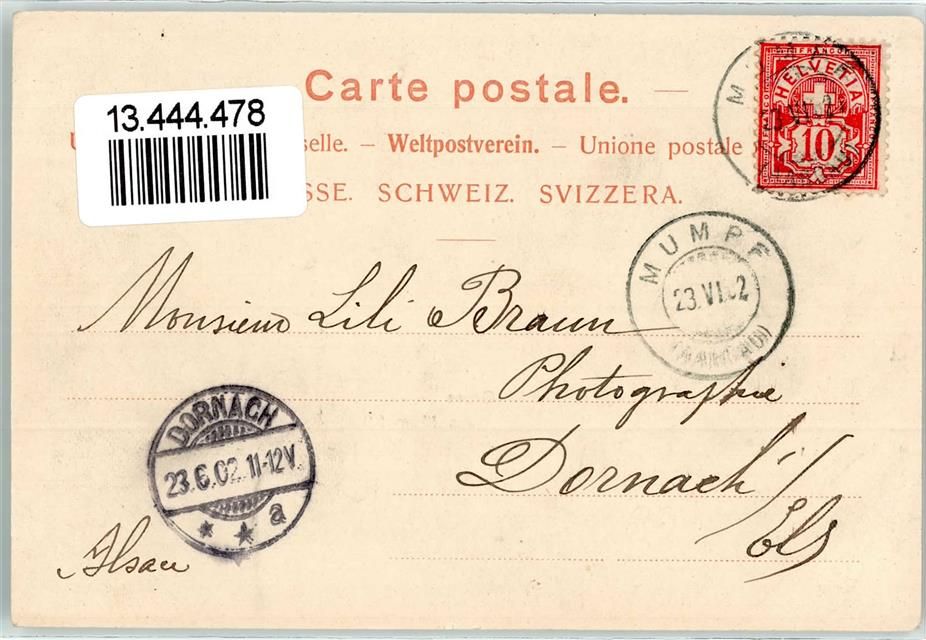 Carte postale.
13.444.478
selle. – Weltpostverein. – Unione postale
SSE. SCHWEIZ. SVIZZERA.
FRANCO
HELVETIA
10
MUMPF
23.VI.02
(AARGAU)
Monsieur Lili Braun
Photographie
Dornach /
Els
DORNACH
23.6.02. 11-12V.
* * a
Ilsau